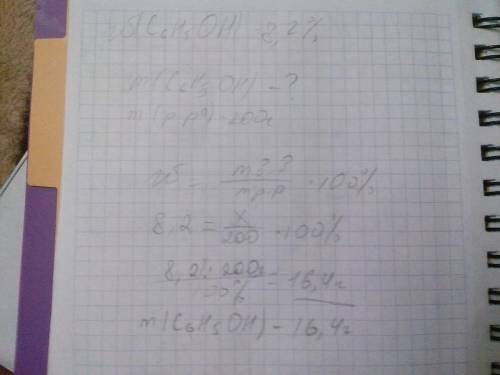 (C₆H₅OH) 8,2%
m(C₆H₅OH) - ?
m(р-ра) = 200г
ω = m в.? / m р.р · 100%
8,2 = x/200 · 100%
8,2% · 200г / 100% = 16,4г
m(C₆H₅OH) - 16,4г